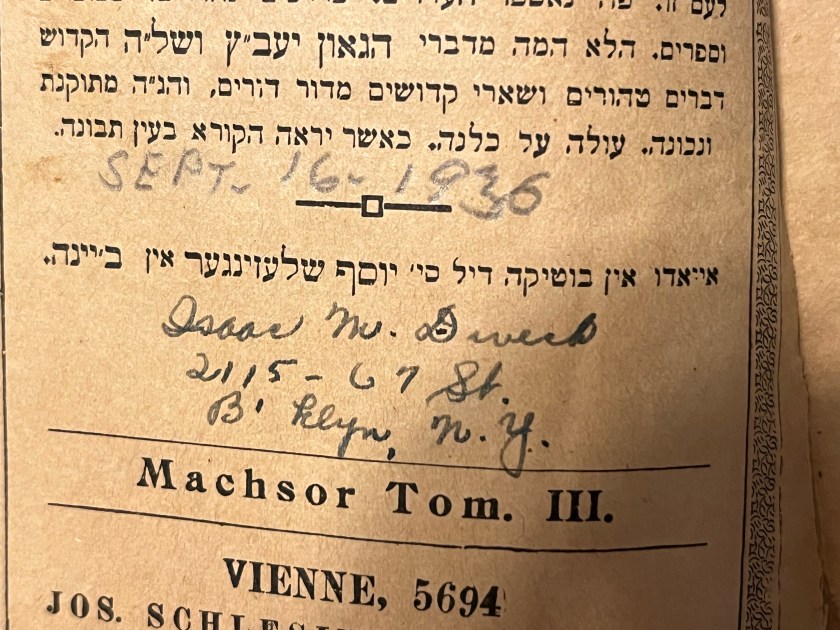 וספרים. הלא המה מדברי הגאון יעב״ץ ושל״ה הקדוש
דברים טהורים ושארי קדושים מדור דורים, והג״ה מתוקנת
ונכונה. עולה על כלנה. כאשר יראה הקורא בעין תבונה.
SEPT. 16-1936
אייאדו אין בוטיקה דיל סי׳ יוסף שלעזינגער אין ב׳יינה.
Isaac M. Dweck
2115-67 St.
B'klyn, N.Y.
Machsor Tom. III.
VIENNE, 5694
JOS.